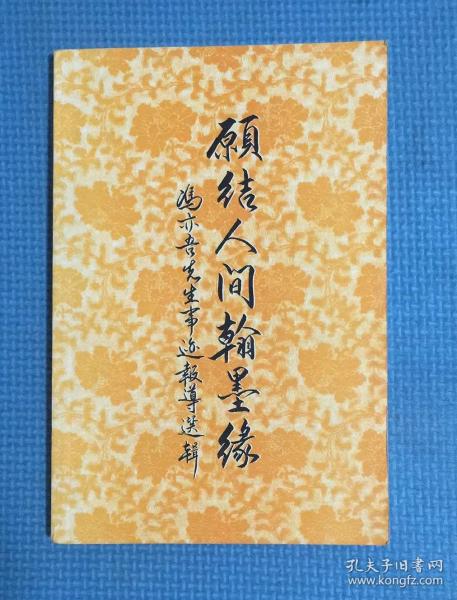 願结人间翰墨缘
馮亦吾先生事迹報導选輯
孔夫子旧书网
www.kongfz.com